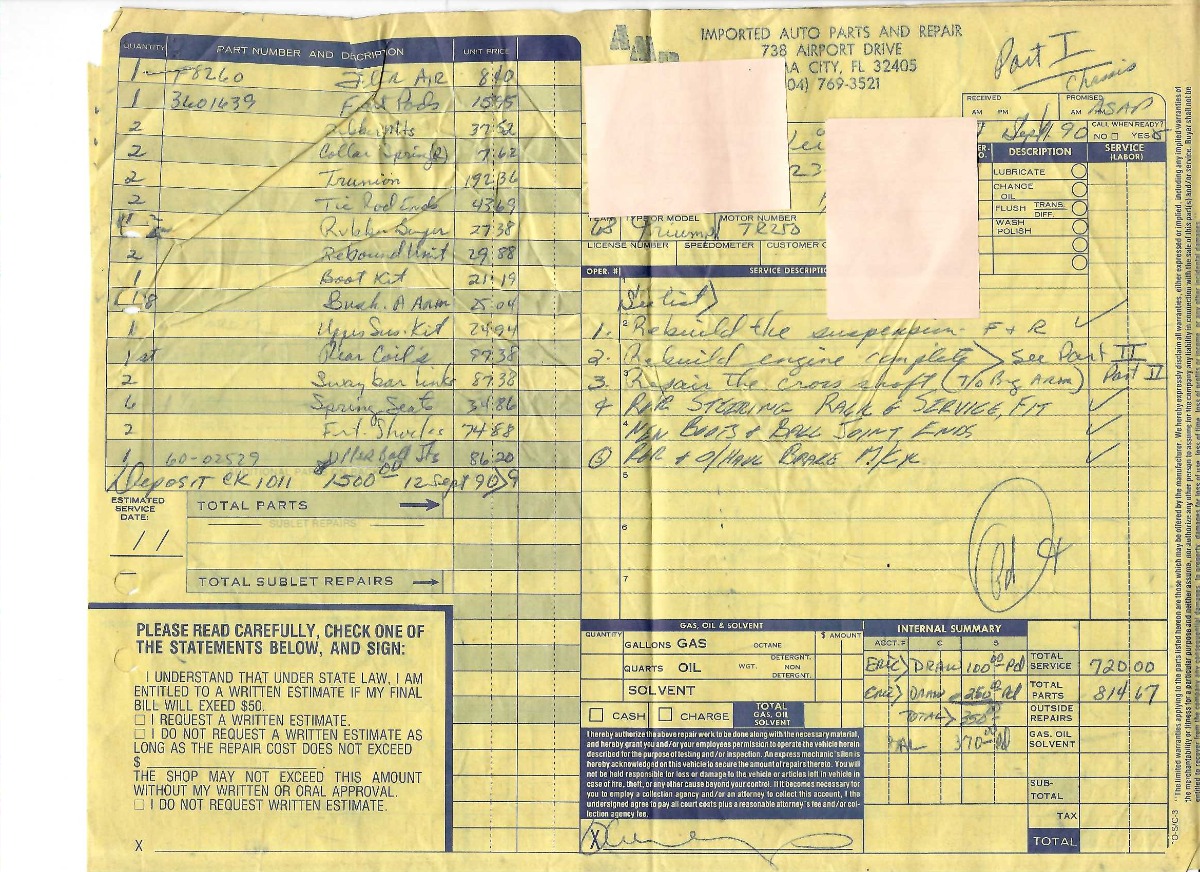 QUANTITY PART NUMBER AND DESCRIPTION UNIT PRICE
1 T8260 Filter AIR 8.40
1 3601639 Frt Pads 15.95
2 37.52
2 Collar Spring(R) 7.62
2 Trunion 192.36
2 Tie Rod Ends 43.69
Rubber 27.38
2 Rebound Unit 29.88
1 Boot Kit 21.19
8 Bush. A Arm 25.04
1 Sus. Kit 24.94
1 st Rear Coils 97.38
2 Sway bar links 87.38
Spring Seats 34.86
2 Frt. Shocks 74.88
1 60-02529 Ball Jts 86.20
Deposit CK 1011 1500.00 12 Sept 90
ESTIMATED SERVICE DATE:
/ /
TOTAL PARTS
SUBLET REPAIRS
TOTAL SUBLET REPAIRS
PLEASE READ CAREFULLY, CHECK ONE OF
THE STATEMENTS BELOW, AND SIGN:
I UNDERSTAND THAT UNDER STATE LAW, I AM
ENTITLED TO A WRITTEN ESTIMATE IF MY FINAL
BILL WILL EXCEED $50.
☐ I REQUEST A WRITTEN ESTIMATE.
☐ I DO NOT REQUEST A WRITTEN ESTIMATE AS
LONG AS THE REPAIR COST DOES NOT EXCEED
$
THE SHOP MAY NOT EXCEED THIS AMOUNT
WITHOUT MY WRITTEN OR ORAL APPROVAL.
☐ I DO NOT REQUEST WRITTEN ESTIMATE.
X
IMPORTED AUTO PARTS AND REPAIR
738 AIRPORT DRIVE
MA CITY, FL 32405
04) 769-3521
Part I
Chassis
RECEIVED AM PM PROMISED AM PM
ASAP
Sept. 90
CALL WHEN READY?
NO ☐ YES
23
DESCRIPTION SERVICE (LABOR)
LUBRICATE
CHANGE OIL
FLUSH TRANS. DIFF.
WASH
POLISH
TYPE OR MODEL MOTOR NUMBER
68 Triumph TR250
LICENSE NUMBER SPEEDOMETER CUSTOMER O
OPER. # SERVICE DESCRIPTIO
1
1. 2 Rebuild the suspension. F + R ✓
2. Rebuild engine complete > See Part II
3. 3 Repair the cross shaft (T/O Brg Arm) Part II
4 R&R STEERING RACK & SERVICE, FIT ✓
4 NEW BOOTS & BALL JOINT ENDS ✓
5 R&R + O/HAUL BRAKE M/CYL ✓
5
6
Pd
7
GAS, OIL & SOLVENT
QUANTITY $ AMOUNT
GALLONS GAS OCTANE
QUARTS OIL WGT. DETERGNT. NON DETERGNT.
SOLVENT
☐ CASH ☐ CHARGE TOTAL GAS, OIL SOLVENT
I hereby authorize the above repair work to be done along with the necessary material,
and hereby grant you and/or your employees permission to operate the vehicle herein
described for the purpose of testing and/or inspection. An express mechanic's lien is
hereby acknowledged on this vehicle to secure the amount of repairs thereto. You will
not be held responsible for loss or damage to the vehicle or articles left in vehicle in
case of fire, theft, or any other cause beyond your control. If it becomes necessary for
you to employ a collection agency and/or an attorney to collect this account, I the
undersigned agree to pay all court costs plus a reasonable attorney's fee and/or col-
lection agency fee.
X
INTERNAL SUMMARY
ACCT. # C S
ERIC> DRAW 100.00 Pd
ERIC> DRAW 250.00 Pd
TOTAL> 350
BAL 370 Pd
TOTAL SERVICE 720.00
TOTAL PARTS 814.67
OUTSIDE REPAIRS
GAS. OIL SOLVENT
SUB-TOTAL
TAX
TOTAL